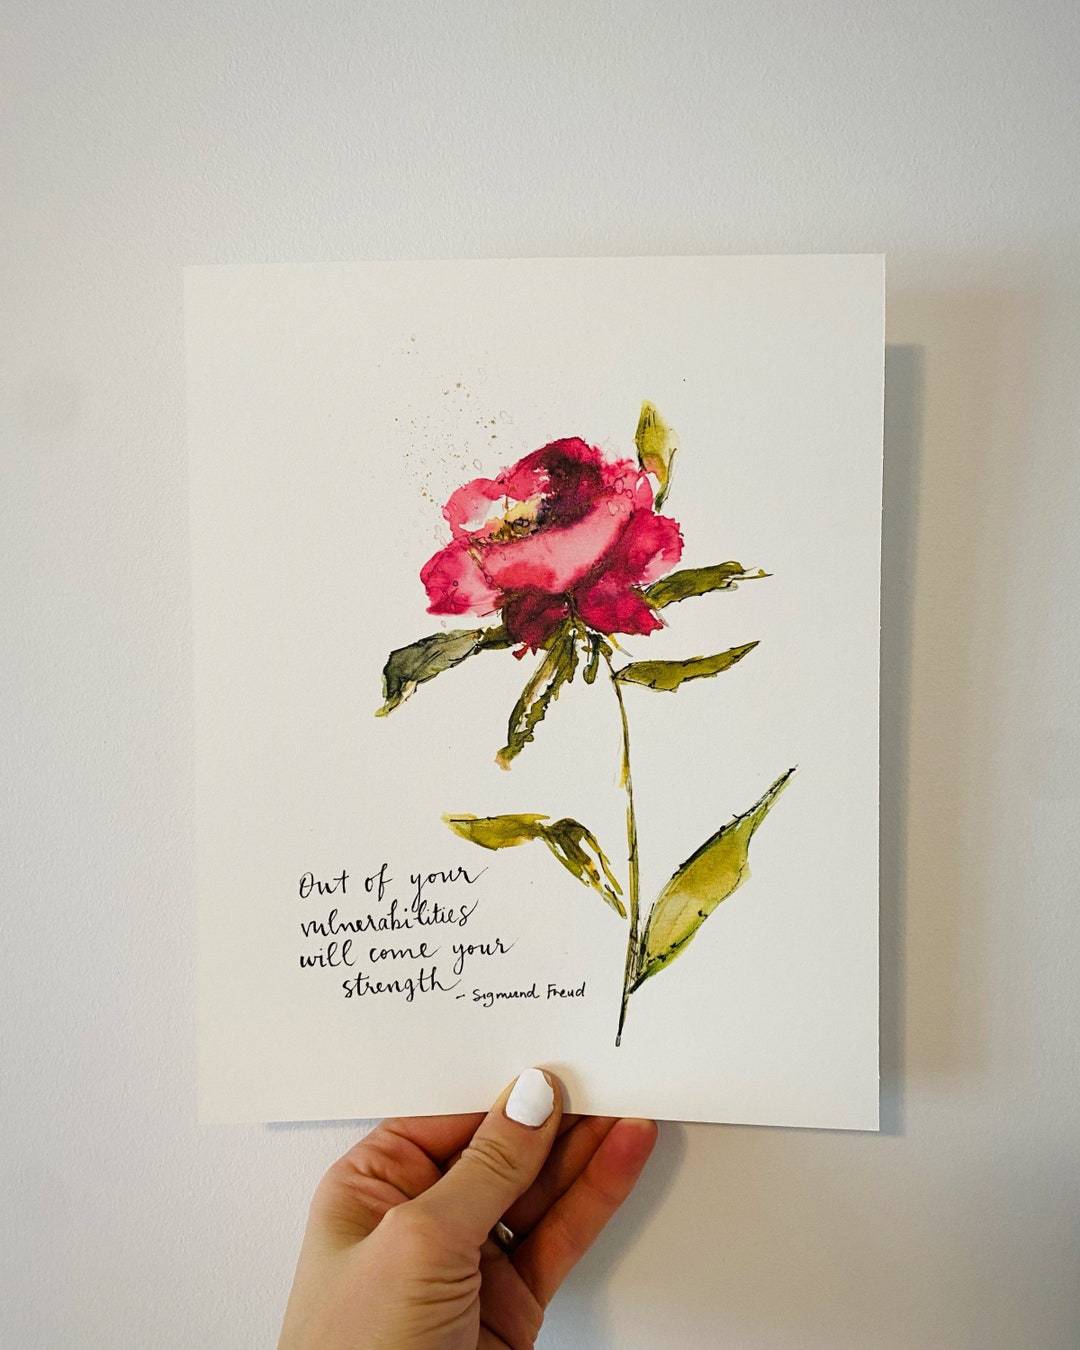 Out of your
vulnerabilities
will come your
strength
- Sigmund Freud